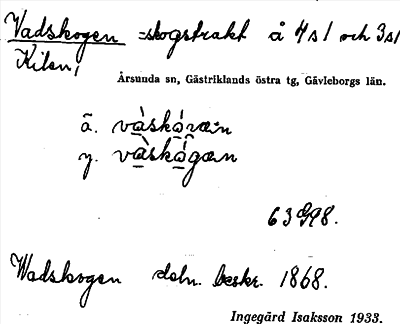 Vadskogen = skogstrakt å 4s1 och 3s1
Kilen,
Årsunda sn, Gästriklands östra tg, Gävleborgs län.
ä. vàskóræn
y. vàskógæn
63 998.
Wadskogen dsbr. beskr. 1868.
Ingegärd Isaksson 1933.